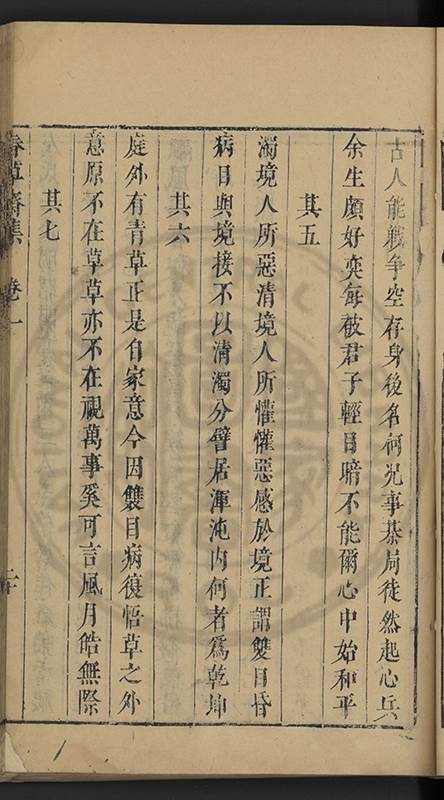 古人能戰争空存身後名何况事棊局徒然起心兵
余生頗好奕每被君子輕目暗不能爾心中始和平
其五
濁境人所惡清境人所懽懽惡感於境正謂雙目昏
病目與境接不以清濁分譬居渾沌内何者爲乾坤
其六
庭外有青草正是自家意今因雙目病復悟草之外
意原不在草草亦不在視萬事奚可言風月皓無際
其七
春草齋集 卷一 二